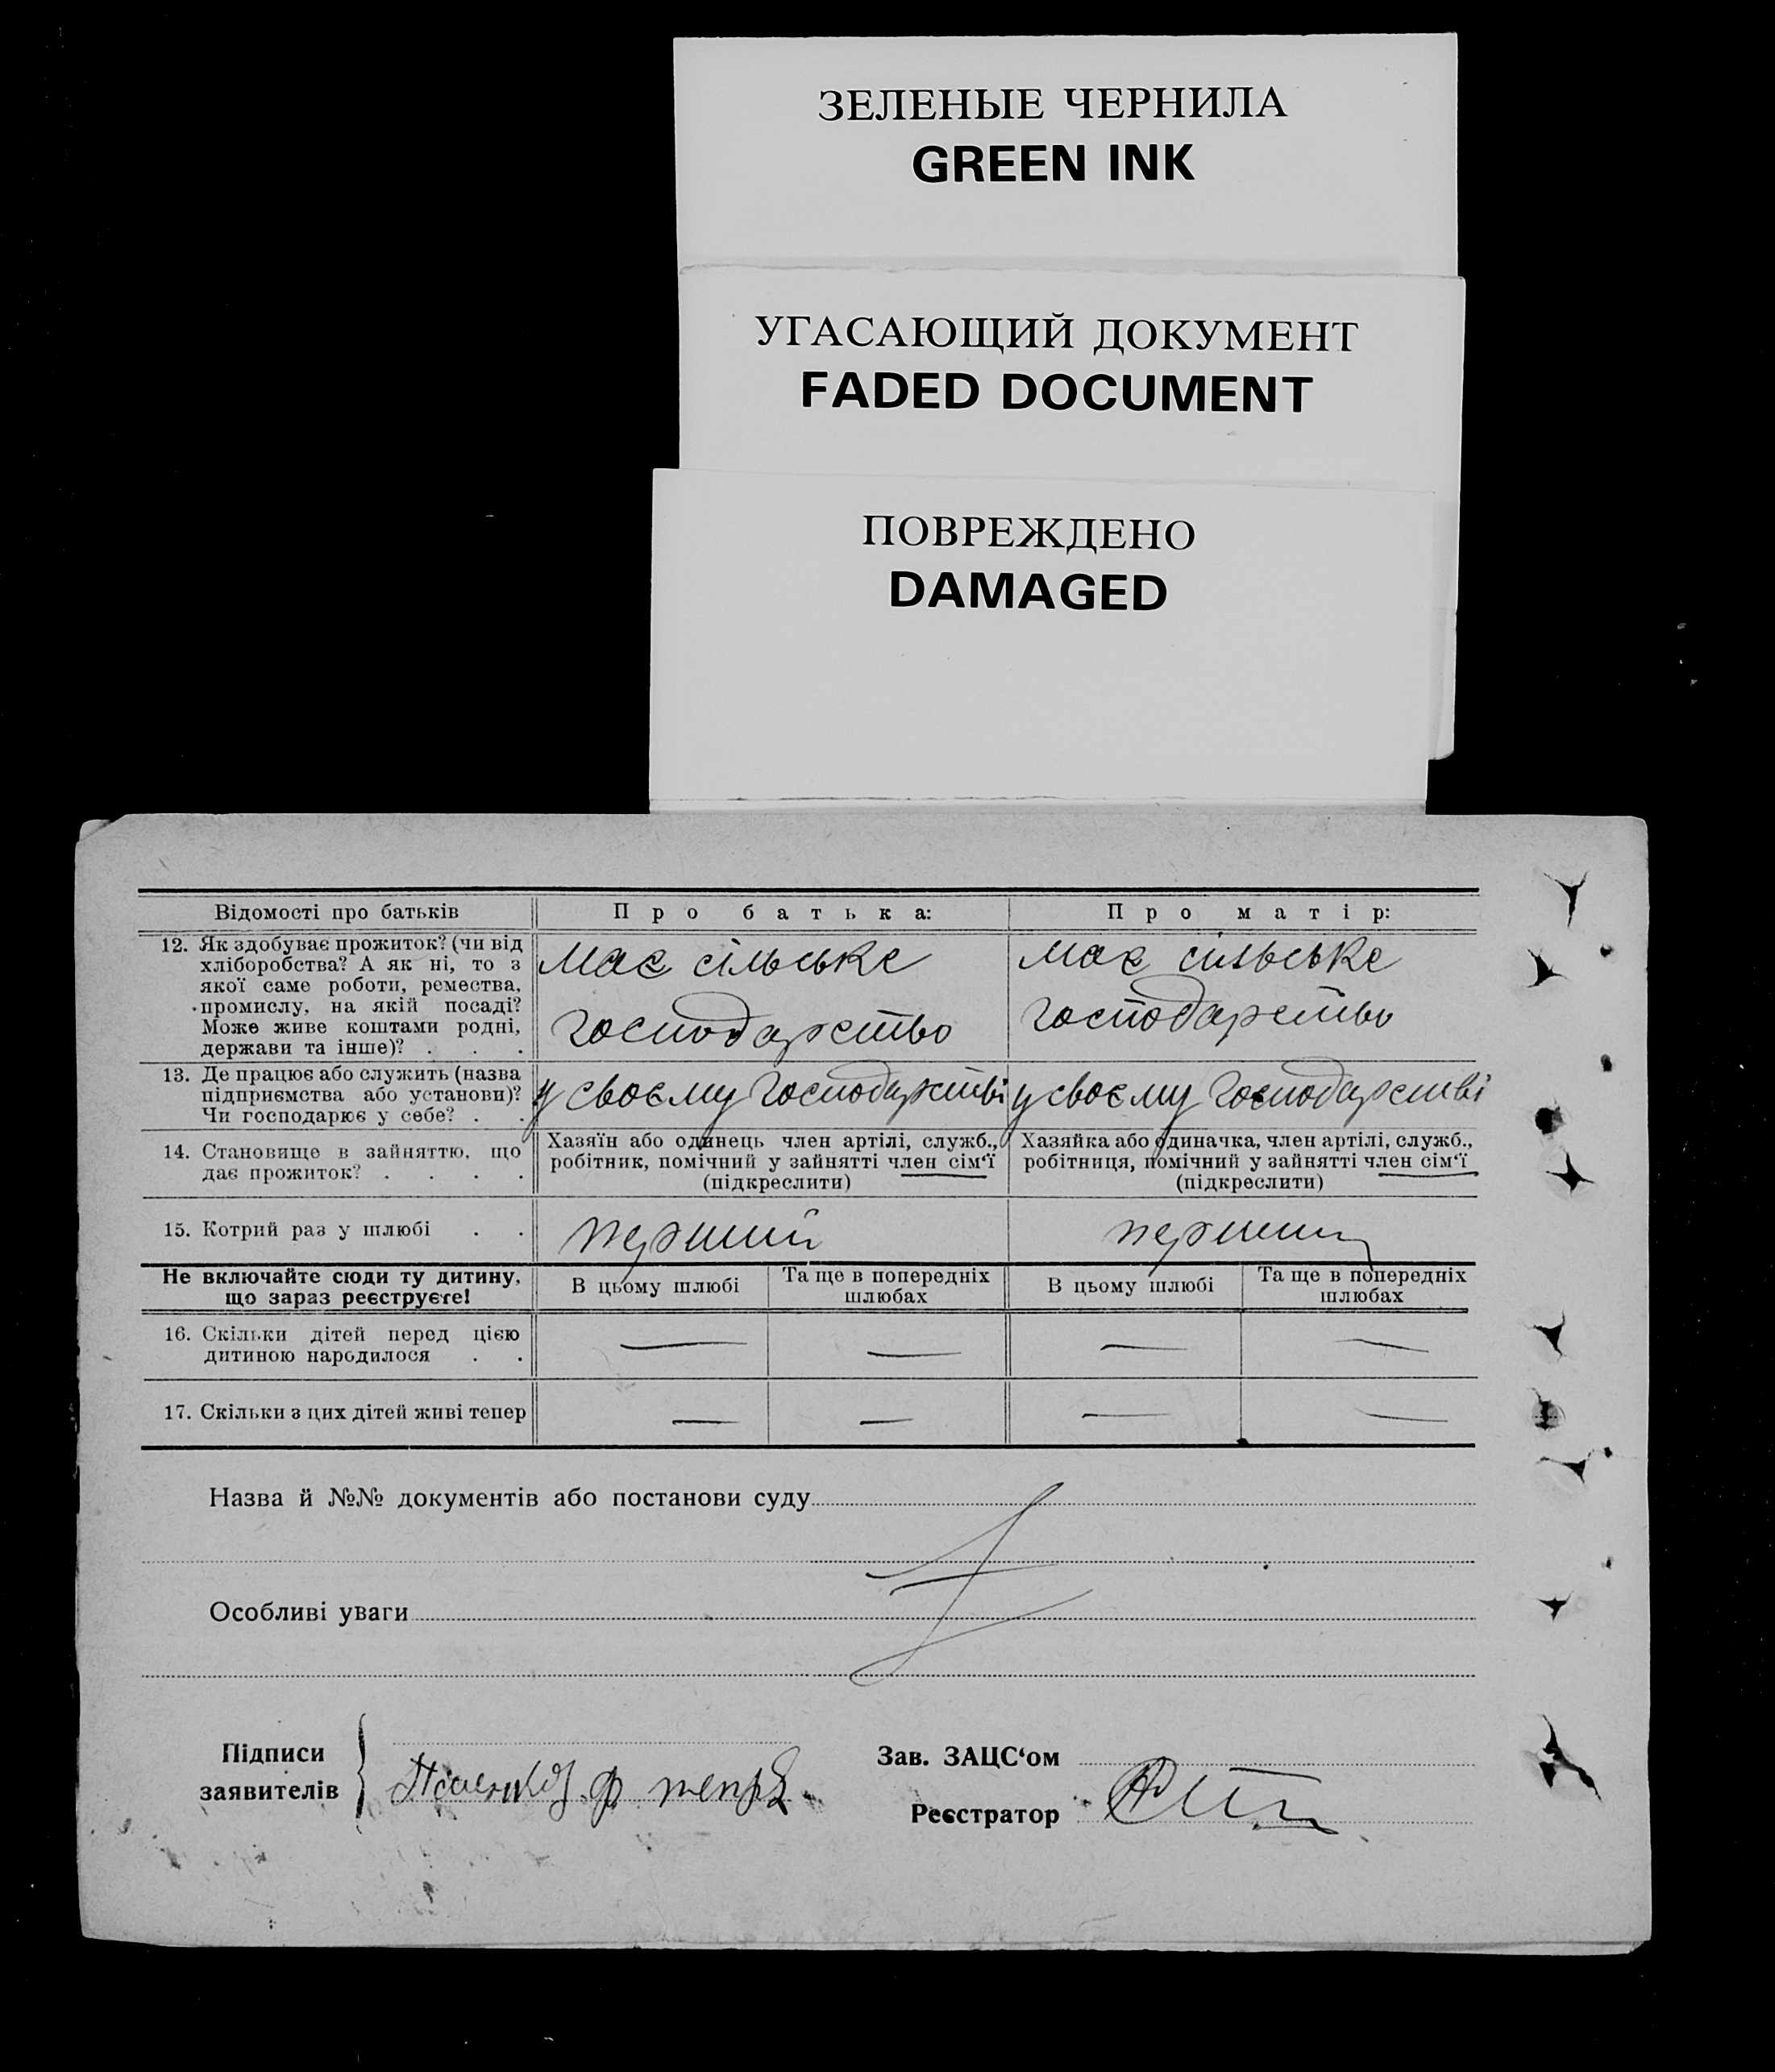 ЗЕЛЕНЫЕ ЧЕРНИЛА
GREEN INK
УГАСАЮЩИЙ ДОКУМЕНТ
FADED DOCUMENT
ПОВРЕЖДЕНО
DAMAGED
Відомості про батьків
Про батька:
Про матір:
12. Як здобуває прожиток? (чи від
хліборобства? А як ні, то з
якої саме роботи, ремества,
промислу, на якій посаді?
Може живе коштами родні,
держави та інше)? . . .
має сільське
господарство
має сільське
господарство
13. Де працює або служить (назва
підприємства або установи)?
Чи господарює у себе? . .
у своєму господарстві
у своєму господарстві
14. Становище в зайняттю, що
дає прожиток? . . . .
Хазяїн або одинець член артілі, служб.,
робітник, помічний у зайнятті член сім'ї
(підкреслити)
Хазяйка або одиначка, член артілі, служб.,
робітниця, помічний у зайнятті член сім'ї
(підкреслити)
15. Котрий раз у шлюбі . .
перший
перший
Не включайте сюди ту дитину,
що зараз реєструєте!
В цьому шлюбі
Та ще в попередніх
шлюбах
В цьому шлюбі
Та ще в попередніх
шлюбах
16. Скільки дітей перед цією
дитиною народилося . .
— — — —
17. Скільки з цих дітей живі тепер
— — — —
Назва й №№ документів або постанови суду
Особливі уваги
Підписи
заявителів
Зав. ЗАЦС'ом
Реєстратор